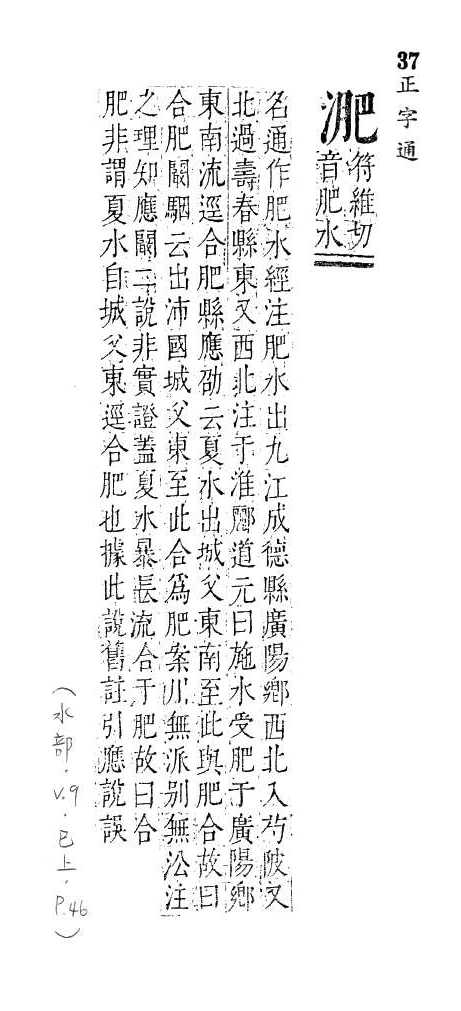 37
正字通
淝
符維切
音肥水
名通作肥水經注肥水出九江成德縣廣陽鄉西北入芍陂又
北過壽春縣東又西北注于淮酈道元曰施水受肥于廣陽鄉
東南流逕合肥縣應劭云夏水出城父東南至此與肥合故曰
合肥闞駰云出沛國城父東至此合爲肥案川無派别無㳂注
之理知應闞二說非實證蓋夏水暴長流合于肥故曰合
肥非謂夏水自城父東逕合肥也據此說舊註引應說誤
(水部.v.9.巳上.P.46)